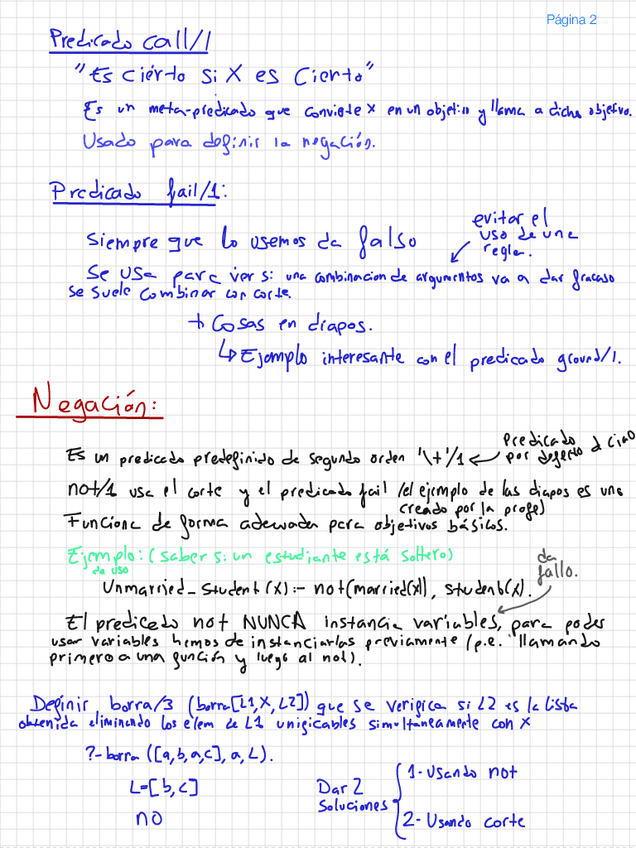 Página 2
Predicado call/1
"Es cierto si X es Cierto"
Es un meta-predicado que convierte X en un objetivo y llama a dicho objetivo.
Usado para definir la negación.
Predicado fail/1:
Siempre que lo usemos da falso
evitar el
uso de una
regla.
Se usa para ver si una combinacion de argumentos va a dar fracaso
se suele combinar con corte.
+ Cosas en diapos.
↳ Ejemplo interesante con el predicado ground/1.
Negación:
Es un predicado predefinido de segundo orden '\+'/1 ←
Predicado
por defecto d ciao
not/1 usa el corte y el predicado fail (el ejemplo de las diapos es uno
creado por la profe)
Funciona de forma adecuada para objetivos básicos.
Ejemplo: (saber si un estudiante está soltero)
de uso
Unmarried_Student(X):- not(married(X)), student(X).
da
fallo.
El predicado not NUNCA instancia variables, para poder
usar variables hemos de instanciarlas previamente (p.e. llamando
primero a una función y luego al not).
Definir borra/3 (borra[L1,X,L2]) que se verifica si L2 es la lista
obtenida eliminando los elem de L1 unificables simultaneamente con X
?-borra ([a,b,a,c],a,L).
L=[b,c]
no
Dar 2
Soluciones
1- Usando not
2- Usando corte